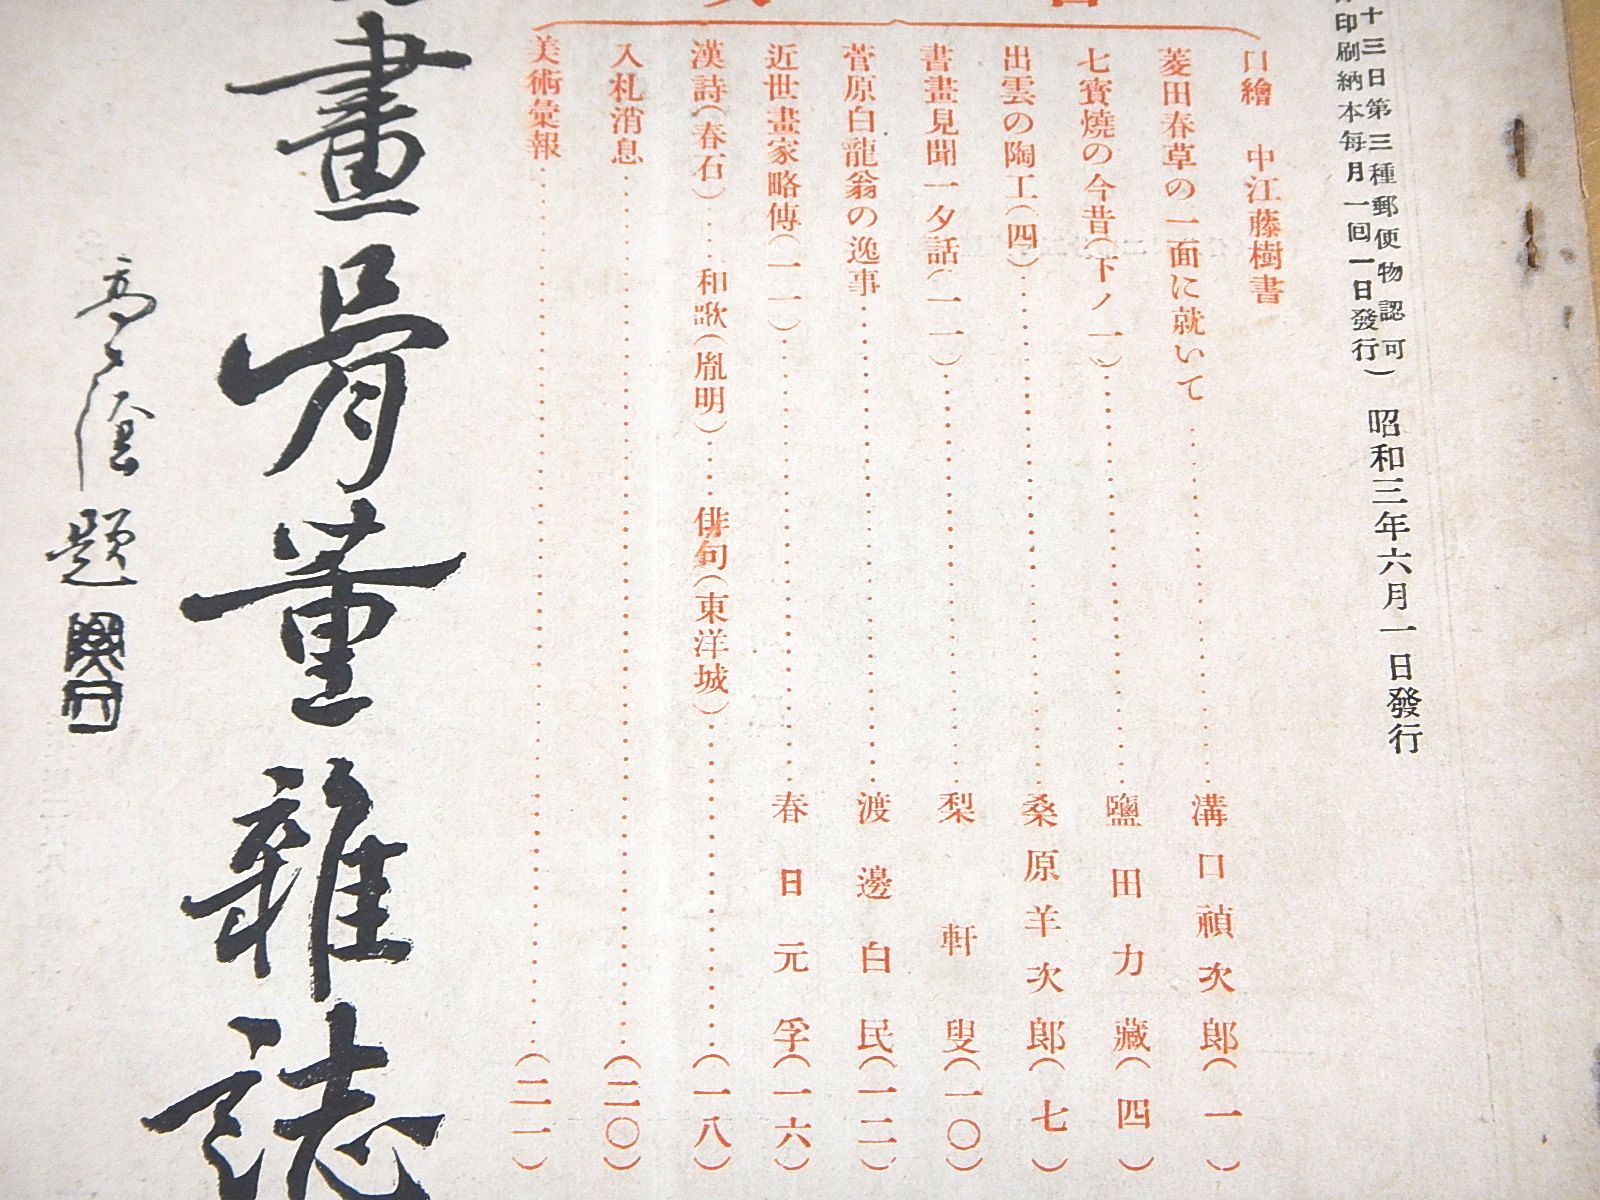 十三日第三種郵便物認可
印刷納本每月一回一日發行）　昭和三年六月一日發行
口繪　中江藤樹書
菱田春草の一面に就いて……溝口禎次郎（一）
七寶燒の今昔（下ノ一）……鹽田力藏（四）
出雲の陶工（四）……桑原羊次郎（七）
書畫見聞一夕話（一一）……梨軒叟（一〇）
菅原白龍翁の逸事……渡邊白民（一二）
近世畫家略傳（一一）……春日元孚（一六）
漢詩（春石）……和歌（胤明）……俳句（東洋城）……（一八）
入札消息……（二〇）
美術彙報……（二一）
畫骨董雜誌
題